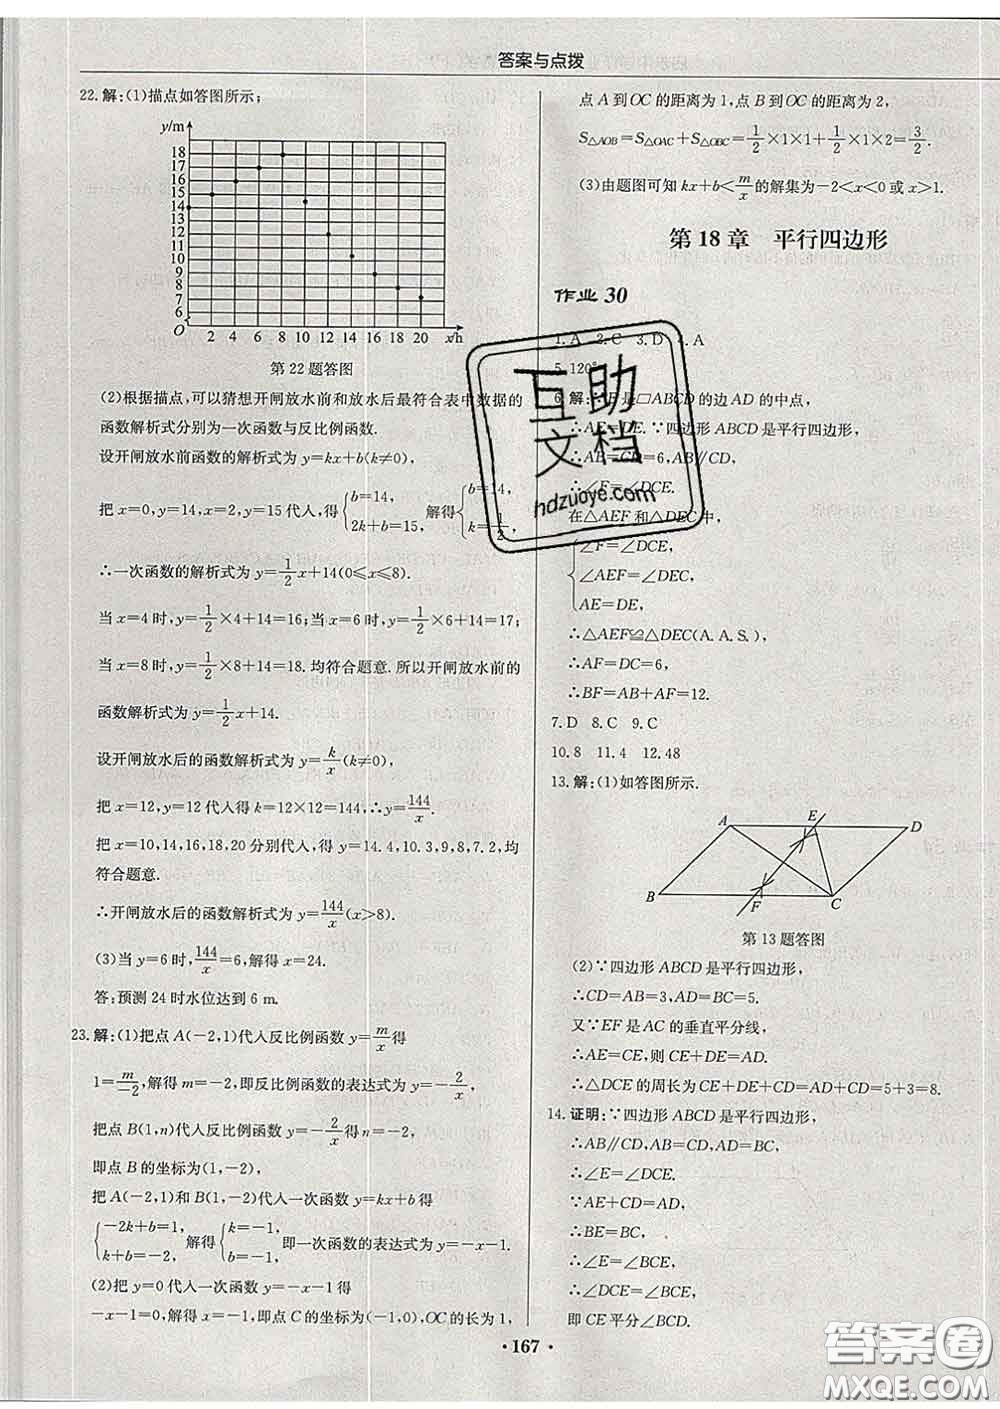 答案与点拨
22.解:(1)描点如答图所示;
y/m
18
17
16
15
14
13
12
11
10
9
8
7
6
O 2 4 6 8 10 12 14 16 18 20 x/h
第22题答图
(2)根据描点,可以猜想开闸放水前和放水后最符合表中数据的
函数解析式分别为一次函数与反比例函数.
设开闸放水前函数的解析式为y=kx+b(k≠0),
把x=0,y=14,x=2,y=15代入,得{b=14, 2k+b=15, 解得{b=14, k=1/2,
∴一次函数的解析式为y=1/2x+14(0≤x≤8).
当x=4时,y=1/2×4+14=16;当x=6时,y=1/2×6+14=17;
当x=8时,y=1/2×8+14=18.均符合题意.所以开闸放水前的
函数解析式为y=1/2x+14.
设开闸放水后的函数解析式为y=k/x(k≠0),
把x=12,y=12代入得k=12×12=144,∴y=144/x.
把x=10,14,16,18,20分别代入,得y=14.4,10.3,9,8,7.2,均
符合题意.
∴开闸放水后的函数解析式为y=144/x(x>8).
(3)当y=6时,144/x=6,解得x=24.
答:预测24时水位达到6 m.
23.解:(1)把点A(-2,1)代入反比例函数y=m/x得
1=m/-2,解得m=-2,即反比例函数的表达式为y=-2/x,
把点B(1,n)代入反比例函数y=-2/x得n=-2,
即点B的坐标为(1,-2),
把A(-2,1)和B(1,-2)代入一次函数y=kx+b得
{-2k+b=1, k+b=-2, 解得{k=-1, b=-1, 即一次函数的表达式为y=-x-1.
(2)把y=0代入一次函数y=-x-1得
-x-1=0,解得x=-1,即点C的坐标为(-1,0),OC的长为1,
点A到OC的距离为1,点B到OC的距离为2,
S△AOB=S△OAC+S△OBC=1/2×1×1+1/2×1×2=3/2.
(3)由题图可知kx+b<m/x的解集为-2<x<0或x>1.
第18章 平行四边形
作业30
1.A 2.C 3.D 4.A
5.120°
6.解:∵E是□ABCD的边AD的中点,
∴AE=DE.∵四边形ABCD是平行四边形,
∴AB=CD=6,AB∥CD,
∴∠F=∠DCE.
在△AEF和△DEC中,
{∠F=∠DCE,
∠AEF=∠DEC,
AE=DE,
∴△AEF≌△DEC(A.A.S.),
∴AF=DC=6,
∴BF=AB+AF=12.
7.D 8.C 9.C
10.8 11.4 12.48
13.解:(1)如答图所示.
A E D
B F C
第13题答图
(2)∵四边形ABCD是平行四边形,
∴CD=AB=3,AD=BC=5.
又∵EF是AC的垂直平分线,
∴AE=CE,则CE+DE=AD.
∴△DCE的周长为CE+DE+CD=AD+CD=5+3=8.
14.证明:∵四边形ABCD是平行四边形,
∴AB∥CD,AB=CD,AD=BC,
∴∠E=∠DCE.
∵AE+CD=AD,
∴BE=BC,
∴∠E=∠BCE,
∴∠DCE=∠BCE,
即CE平分∠BCD.
互助
文档
hdzuoye.com
答案圈
MXQE.COM
·167·